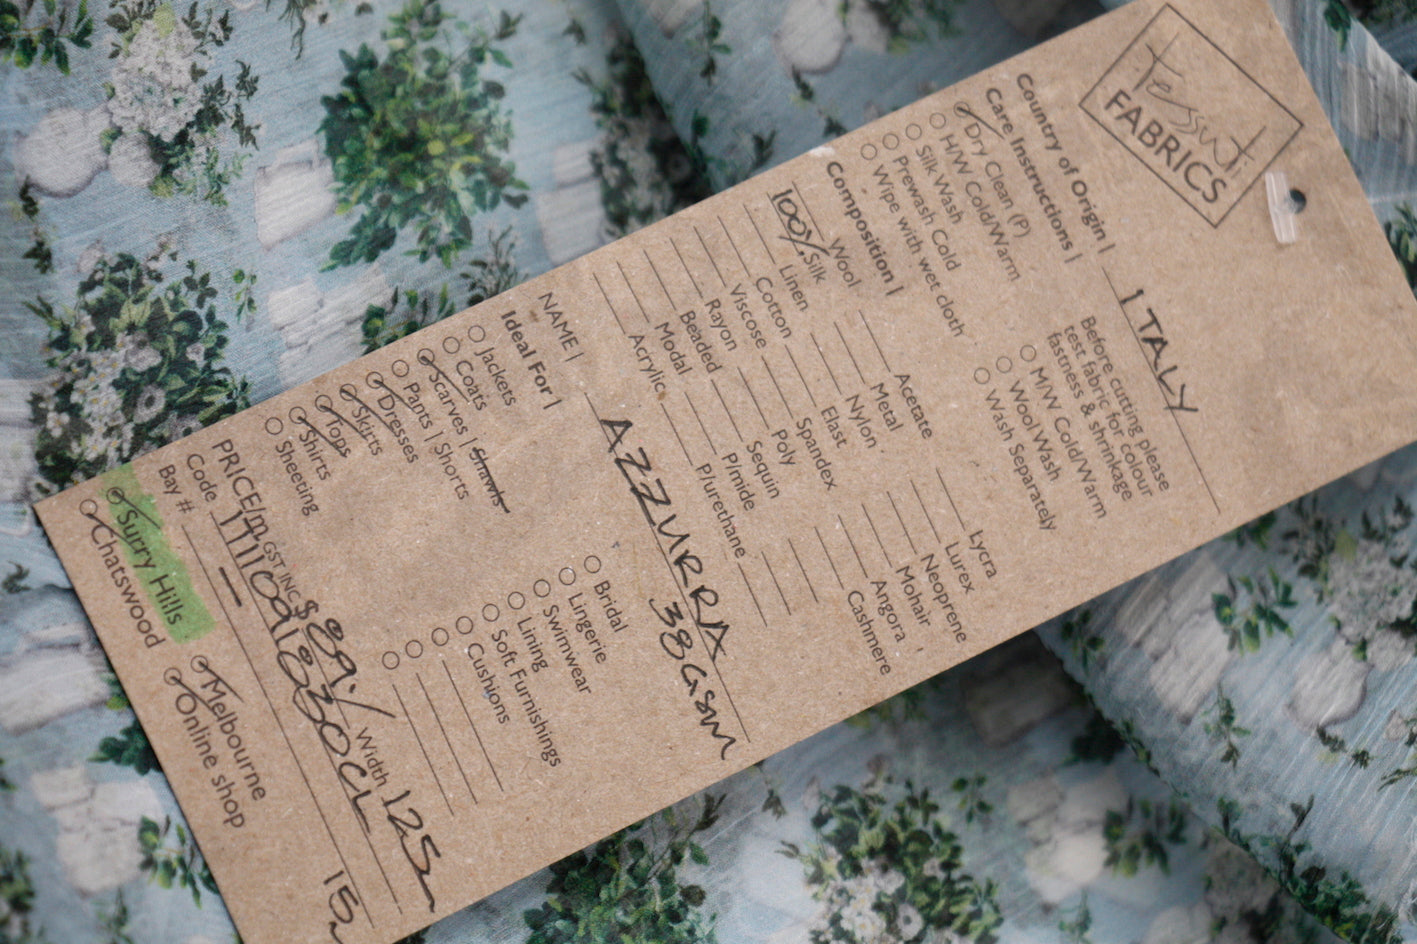 Tessuti
FABRICS
Country of Origin | ITALY
Care Instructions |
Before cutting please
test fabric for colour
fastness & shrinkage
Dry Clean (P)
H/W Cold/Warm
Silk Wash
Prewash Cold
Wipe with wet cloth
M/W Cold/Warm
Wool Wash
Wash Separately
Composition |
Wool Acetate Lycra
100% Silk Metal Lurex
Linen Nylon Neoprene
Cotton Elast Mohair
Viscose Spandex Angora
Rayon Poly Cashmere
Beaded Sequin
Modal P/mide
Acrylic P/urethane
NAME | AZZURRA 38GSM
Ideal For |
Jackets Bridal
Coats Lingerie
Scarves | Shawls Swimwear
Pants | Shorts Lining
Dresses Soft Furnishings
Skirts Cushions
Tops
Shirts
Sheeting
PRICE/m GST INC $ 89./ Width 125
Code
Bay # — 15
Surry Hills Melbourne
Chatswood Online shop